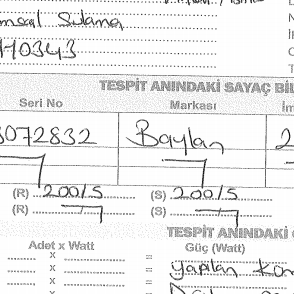 Sulama
110343
TESPİT ANINDAKİ SAYAÇ BİL
Seri No Markası İm
3072832 Baylan 2
(R) 200/5 (S) 200/5
(R) (S)
TESPİT ANINDAKİ
Adet x Watt Güç (Watt)
x = yapılan Kon
x =
x =
x =